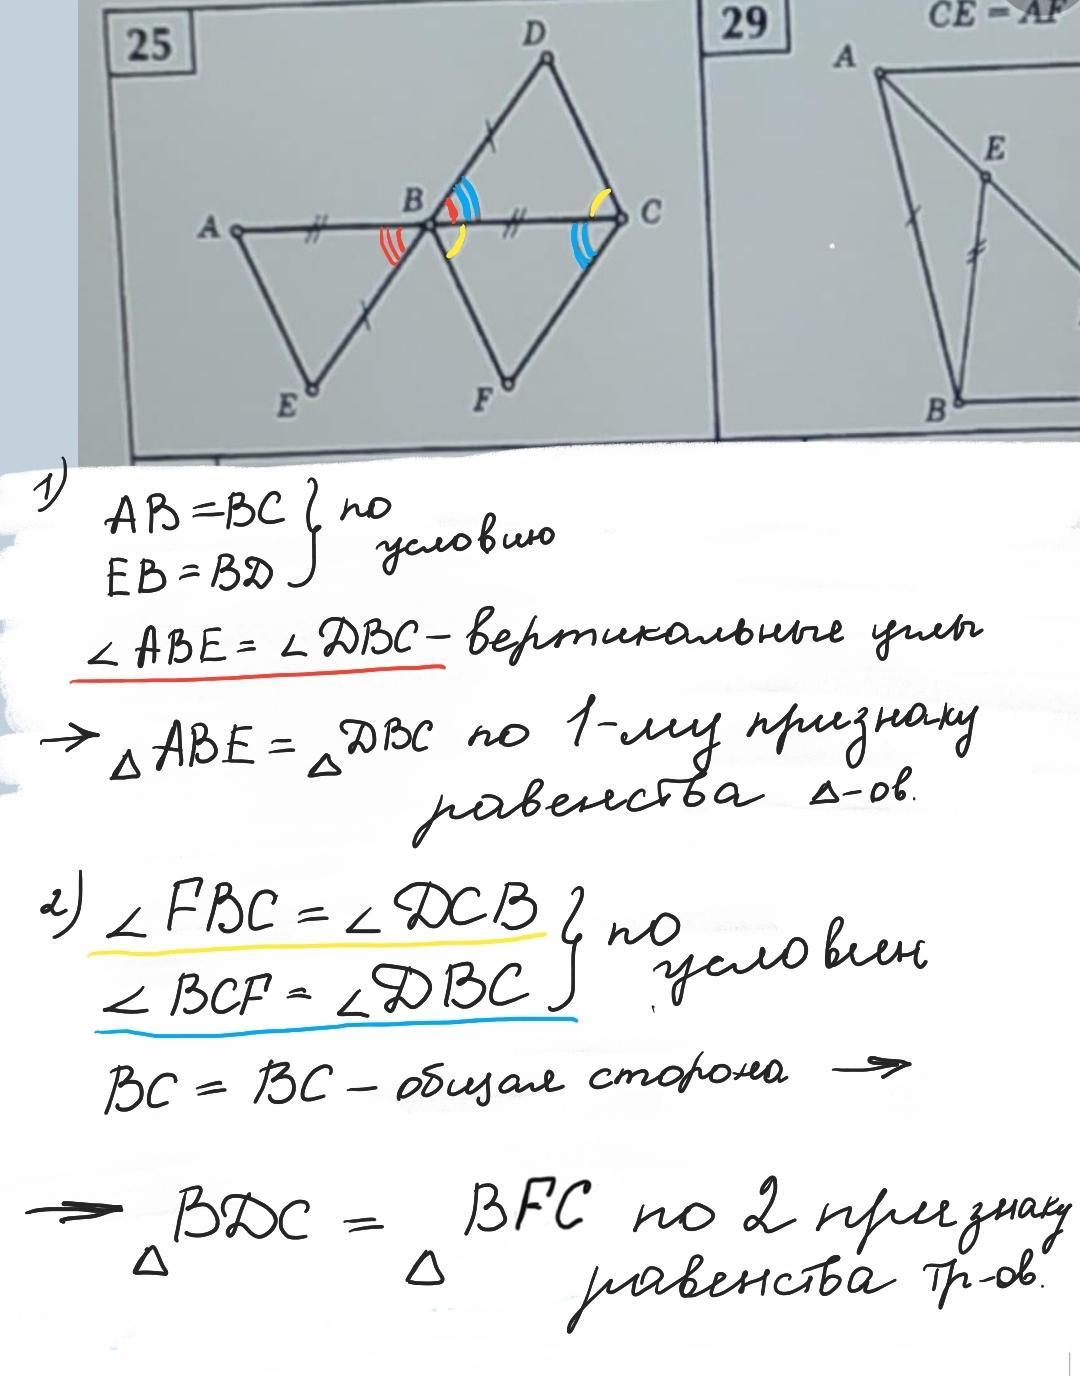 25
29
CE = AF
D
A
B
C
E
F
A
E
B
1)
AB = BC } по
EB = BD } условию
∠ ABE = ∠ DBC - вертикальные углы
→ △ ABE = △ DBC по 1-му признаку
равенства △-ов.
2) ∠ FBC = ∠ DCB } по
∠ BCF = ∠ DBC } условиен
BC = BC - общая сторона →
→ △ BDC = △ BFC по 2 признаку
равенства тр-ов.